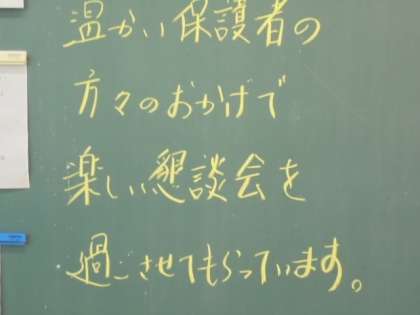 温かい保護者の
方々のおかげで
楽しい懇談会を
過ごさせてもらっています。